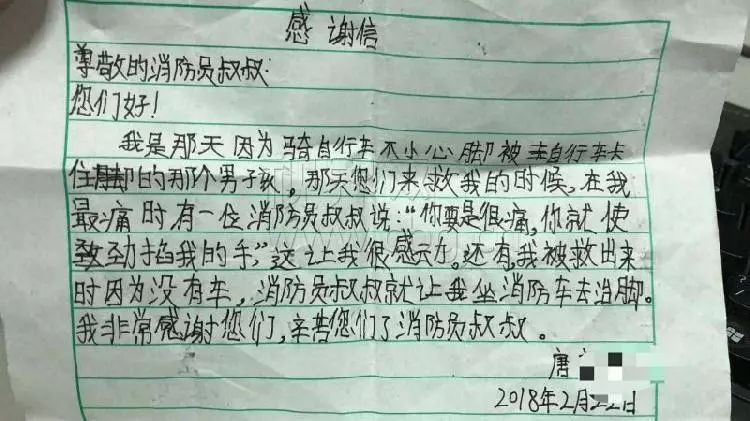 感谢信
尊敬的消防员叔叔:
您们好!
我是那天因为骑自行车不小心脚被自行车卡
住脚的那个男孩，那天您们来救我的时候，在我
最痛时有一位消防员叔叔说：“你要是很痛，你就使
劲掐我的手，”这让我很感动。还有，我被救出来
时因为没有车，消防员叔叔就让我坐消防车去治脚。
我非常感谢您们，辛苦您们了消防员叔叔。
唐
2018年2月22日